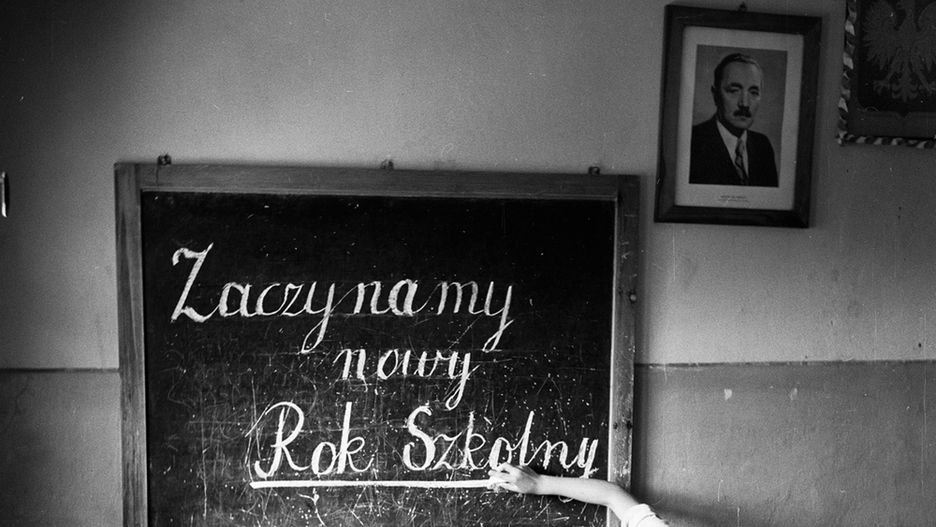 Zaczynamy
nowy
Rok Szkolny